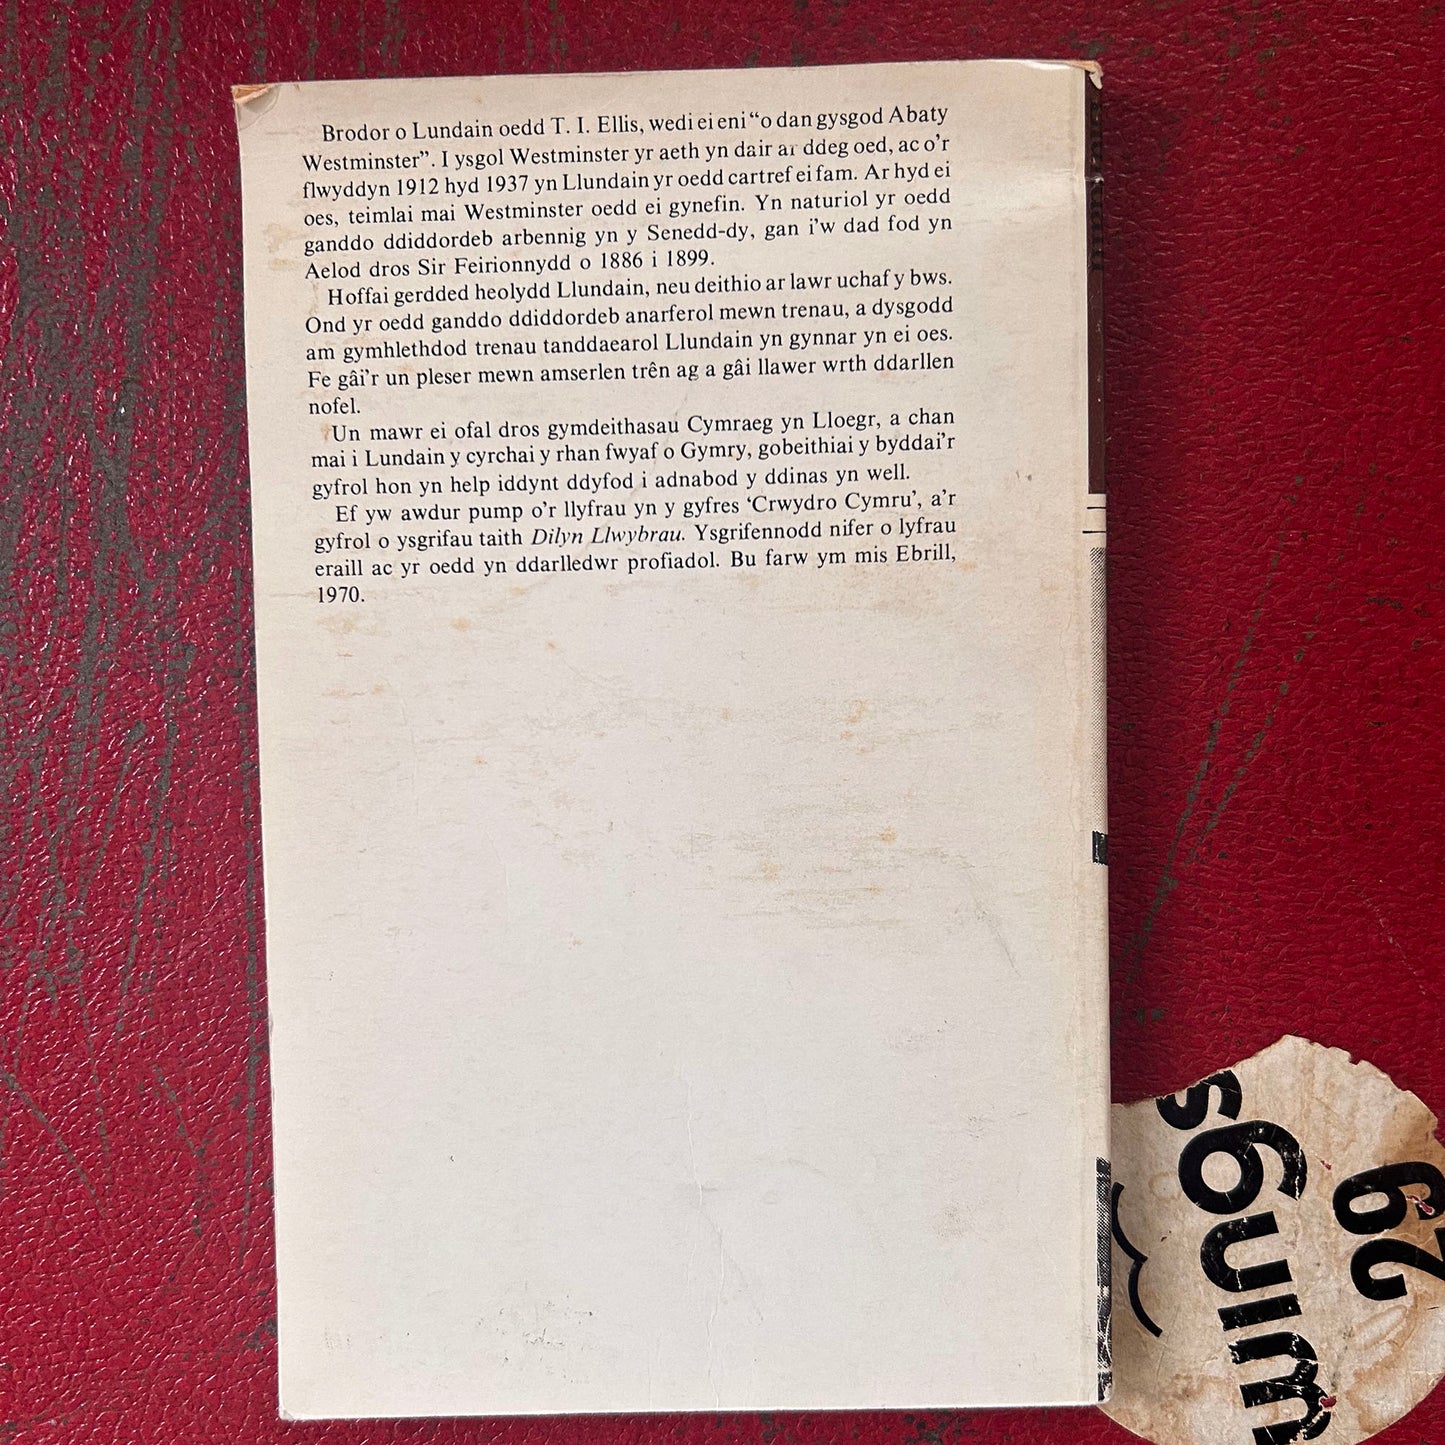 Brodor o Lundain oedd T. I. Ellis, wedi ei eni “o dan gysgod Abaty
Westminster”. I ysgol Westminster yr aeth yn dair ar ddeg oed, ac o’r
flwyddyn 1912 hyd 1937 yn Llundain yr oedd cartref ei fam. Ar hyd ei
oes, teimlai mai Westminster oedd ei gynefin. Yn naturiol yr oedd
ganddo ddiddordeb arbennig yn y Senedd-dy, gan i’w dad fod yn
Aelod dros Sir Feirionnydd o 1886 i 1899.
Hoffai gerdded heolydd Llundain, neu deithio ar lawr uchaf y bws.
Ond yr oedd ganddo ddiddordeb anarferol mewn trenau, a dysgodd
am gymhlethdod trenau tanddaearol Llundain yn gynnar yn ei oes.
Fe gâi’r un pleser mewn amserlen trên ag a gâi llawer wrth ddarllen
nofel.
Un mawr ei ofal dros gymdeithasau Cymraeg yn Lloegr, a chan
mai i Lundain y cyrchai y rhan fwyaf o Gymry, gobeithiai y byddai’r
gyfrol hon yn help iddynt ddyfod i adnabod y ddinas yn well.
Ef yw awdur pump o’r llyfrau yn y gyfres ‘Crwydro Cymru’, a’r
gyfrol o ysgrifau taith Dilyn Llwybrau. Ysgrifennodd nifer o lyfrau
eraill ac yr oedd yn ddarlledwr profiadol. Bu farw ym mis Ebrill,
1970.